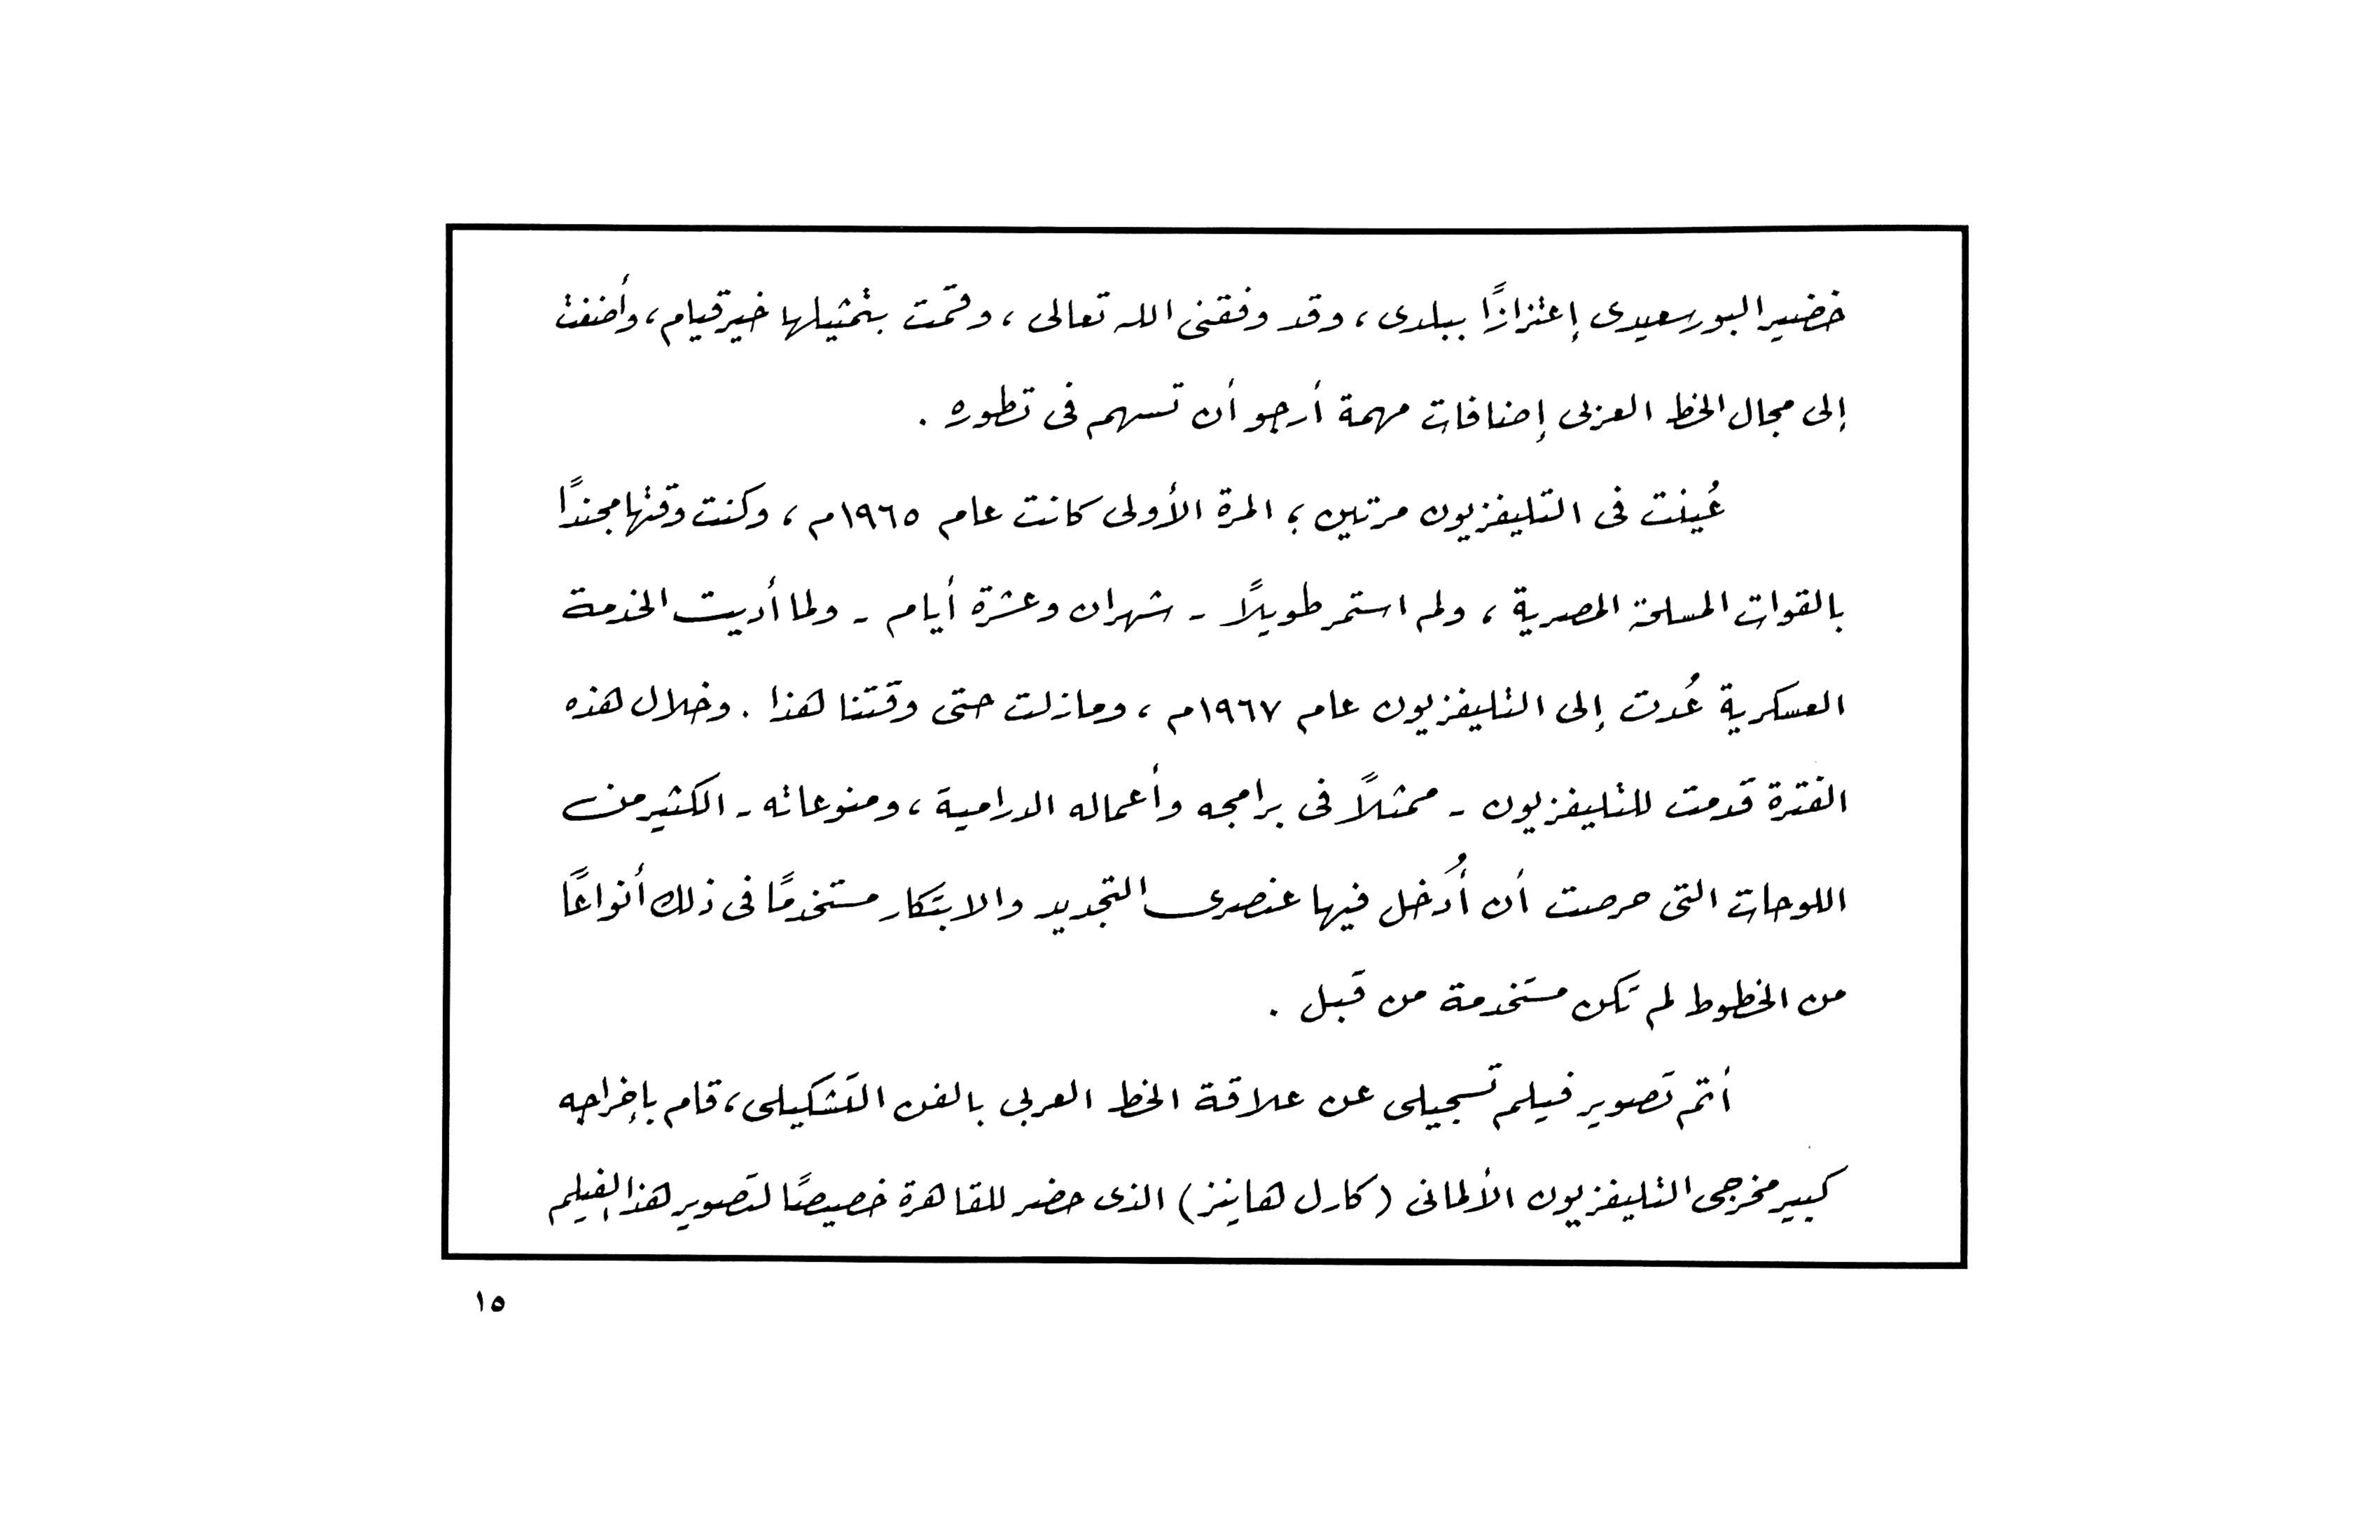 خضير البورسعيدى إعتزازًا ببلدى، وقد وفقنى الله تعالى، وقمت بتمثيلها خير قيام، وأضفت
إلى مجال الخط العربى إضافات مهمة أرجو أن تسهم فى تطوره .
عُينت فى التليفزيون مرتين؛ المرة الأولى كانت عام ١٩٦٥م، وكنت وقتها مجندًا
بالقوات المسلحة المصرية، ولم استمر طويلاً - شهران وعشرة أيام - ولما أديت الخدمة
العسكرية عُدت إلى التليفزيون عام ١٩٦٧م، ومازلت حتى وقتنا هذا . وخلال هذه
الفترة قدمت للتليفزيون - ممثلاً فى برامجه وأعماله الدرامية، ومنوعاته - الكثير من
اللوحات التى حرصت أن أُدخل فيها عنصرى التجديد والابتكار مستخدمًا فى ذلك أنواعًا
من الخطوط لم تكن مستخدمة من قبل .
أتم تصوير فيلم تسجيلى عن علاقة الخط العربى بالفن التشكيلى، قام بإخراجه
كبير مخرجى التليفزيون الألمانى (كارل هاينز) الذى حضر للقاهرة خصيصًا لتصوير هذا الفيلم
١٥